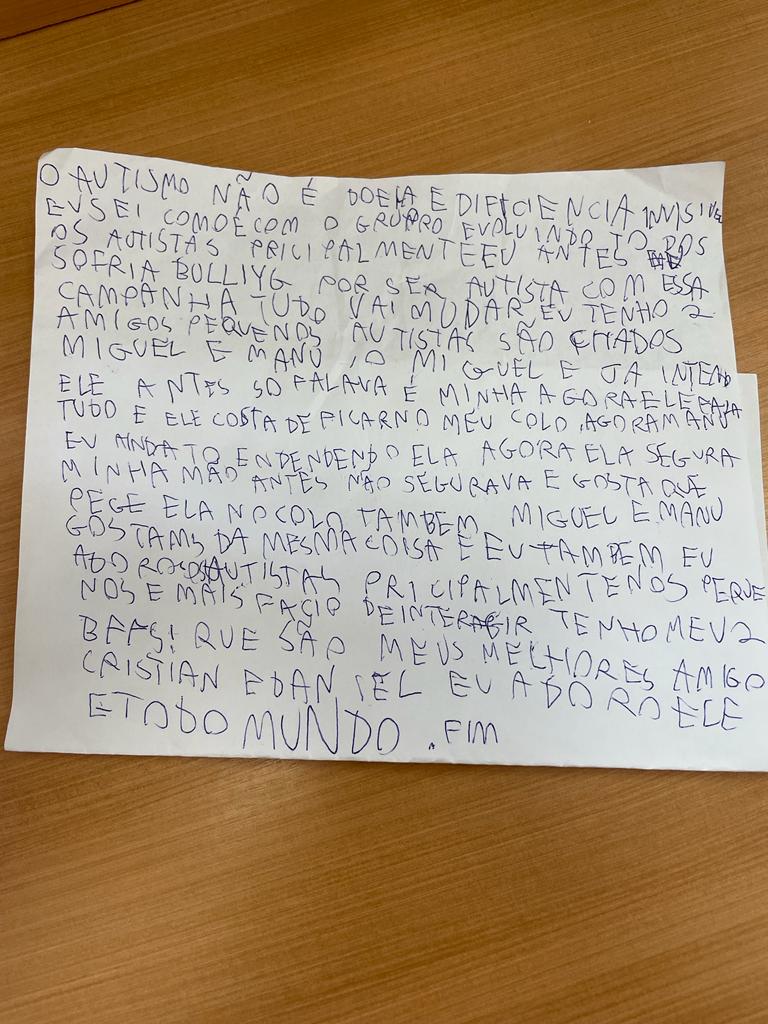 O AUTISMO NÃO É DOEÍA E DIFICIENCIA INVISIVEL
EU SEI COMO É COM O GRUPRO EVOLUINDO TODOS
OS AUTISTAS PRICIPALMENTE EU ANTES
SOFRIA BULLIYG POR SER AUTISTA COM ESSA
CAMPANHA TUDO VAI MUDAR, EU TENHO 2
AMIGOS PEQUENOS AUTISTAS SÃO CHADOS
MIGUEL E MANU, O MIGUEL E JA INTEND
ELE ANTES SO FALAVA É MINHA AGORA ELE FALA
TUDO E ELE COSTA DE FICAR NO MEU COLO, AGORA MANU
EU AINDA TO ENDENDENDO ELA AGORA ELA SEGURA
MINHA MÃO ANTES NÃO SEGURAVA E GOSTA QUE
PEGE ELA NO COLO TAMBEM, MIGUEL E MANU
GOSTAMS DA MESMA COISA E EU TAMBEM EU
ADORO OS AUTISTAS PRICIPALMENTE NOS PEQUE
NOS E MAIS FACIO DE INTERAGIR TENHO MEU 2
BFFS! QUE SÃO MEUS MELHORES AMIGO
CRISTIAN E DANIEL EU ADORO ELE
E TODO MUNDO. FIM